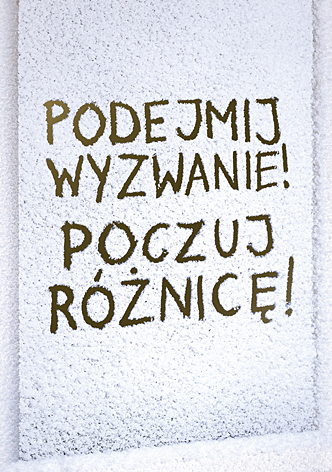 PODEJMIJ
WYZWANIE!
POCZUJ
RÓŻNICĘ!